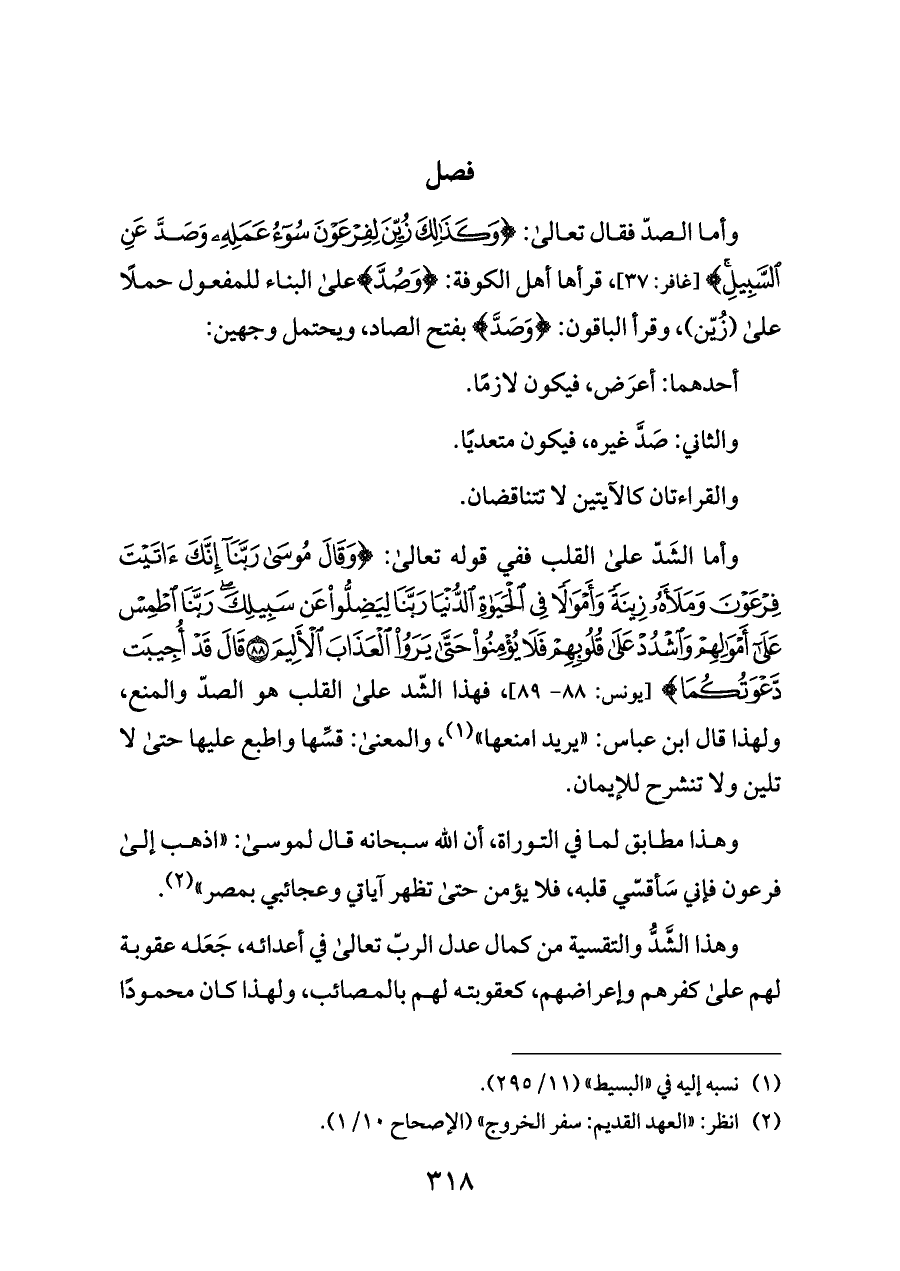 فصل
وأما الصدّ فقال تعالىٰ: ﴿وَكَذَٰلِكَ زُيِّنَ لِفِرْعَوْنَ سُوٓءُ عَمَلِهِۦ وَصَدَّ عَنِ
ٱلسَّبِيلِۚ﴾ [غافر: ٣٧]، قرأها أهل الكوفة: ﴿وَصُدَّ﴾ علىٰ البناء للمفعول حملًا
علىٰ (زُيّن)، وقرأ الباقون: ﴿وَصَدَّ﴾ بفتح الصاد، ويحتمل وجهين:
أحدهما: أعرَض، فيكون لازمًا.
والثاني: صَدَّ غيره، فيكون متعديًا.
والقراءتان كالآيتين لا تتناقضان.
وأما الشَدّ علىٰ القلب ففي قوله تعالىٰ: ﴿وَقَالَ مُوسَىٰ رَبَّنَآ إِنَّكَ ءَاتَيْتَ
فِرْعَوْنَ وَمَلَأَهُۥ زِينَةً وَأَمْوَٰلًا فِى ٱلْحَيَوٰةِ ٱلدُّنْيَا رَبَّنَا لِيُضِلُّوا۟ عَن سَبِيلِكَۖ رَبَّنَا ٱطْمِسْ
عَلَىٰٓ أَمْوَٰلِهِمْ وَٱشْدُدْ عَلَىٰ قُلُوبِهِمْ فَلَا يُؤْمِنُوا۟ حَتَّىٰ يَرَوُا۟ ٱلْعَذَابَ ٱلْأَلِيمَ ۝٨٨ قَالَ قَدْ أُجِيبَت
دَّعْوَتُكُمَا﴾ [يونس: ٨٨- ٨٩]، فهذا الشّد علىٰ القلب هو الصدّ والمنع،
ولهذا قال ابن عباس: «يريد امنعها»(١)، والمعنىٰ: قسِّها واطبع عليها حتىٰ لا
تلين ولا تنشرح للإيمان.
وهذا مطابق لما في التوراة، أن الله سبحانه قال لموسىٰ: «اذهب إلىٰ
فرعون فإني سَأقسّي قلبه، فلا يؤمن حتىٰ تظهر آياتي وعجائبي بمصر»(٢).
وهذا الشَّدُّ والتقسية من كمال عدل الربّ تعالىٰ في أعدائه، جَعَله عقوبة
لهم علىٰ كفرهم وإعراضهم، كعقوبته لهم بالمصائب، ولهذا كان محمودًا
(١) نسبه إليه في «البسيط» (١١/ ٢٩٥).
(٢) انظر: «العهد القديم: سفر الخروج» (الإصحاح ١٠/ ١).
٣١٨